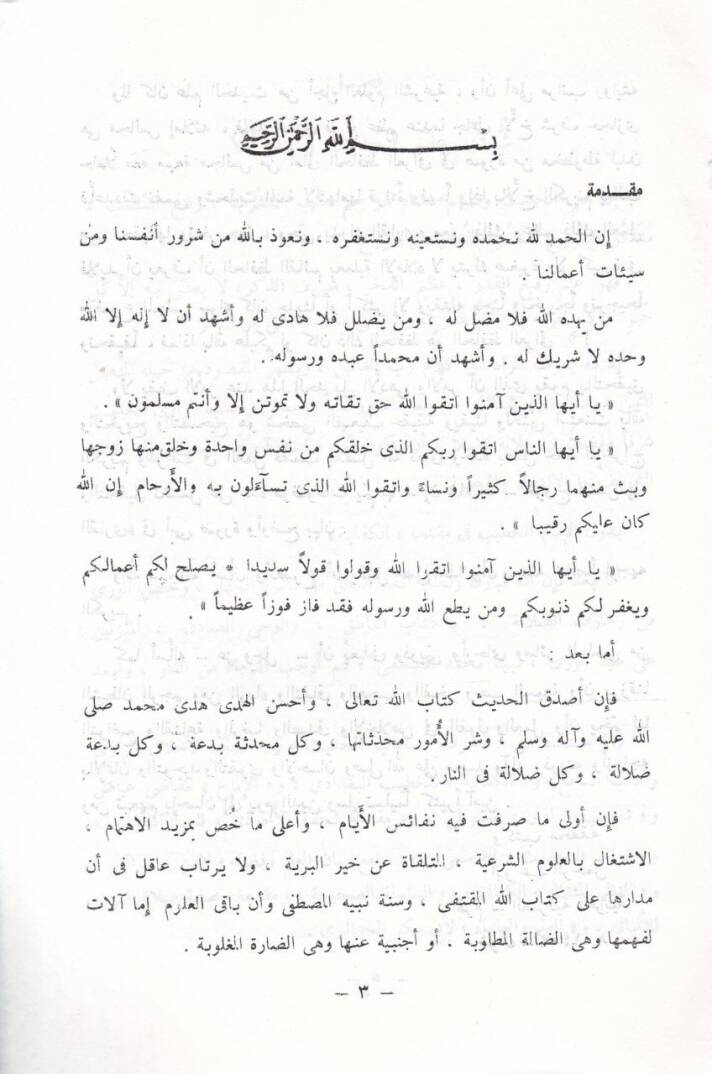 بسم الله الرحمن الرحيم
مقدمة
إن الحمد لله نحمده ونستعينه ونستغفره ، ونعوذ بالله من شرور أنفسنا ومن
سيئات أعمالنا
من يهده الله فلا مضل له ، ومن يضلل فلا هادى له وأشهد أن لا إله إلا الله
وحده لا شريك له . وأشهد أن محمداً عبده ورسوله .
« يا أيها الذين آمنوا اتقوا الله حق تقاته ولا تموتن إلا وأنتم مسلمون » .
« يا أيها الناس اتقوا ربكم الذى خلقكم من نفس واحدة وخلق منها زوجها
وبث منهما رجالاً كثيراً ونساءً واتقوا الله الذى تسآءلون به والأرحام إن الله
كان عليكم رقيبا » .
« يا أيها الذين آمنوا اتقوا الله وقولوا قولاً سديدا * يصلح لكم أعمالكم
ويغفر لكم ذنوبكم ومن يطع الله ورسوله فقد فاز فوزاً عظيماً » .
أما بعد :
فإن أصدق الحديث كتاب الله تعالى ، وأحسن الهدى هدى محمد صلى
الله عليه وآله وسلم ، وشر الأمور محدثاتها ، وكل محدثة بدعة ، وكل بدعة
ضلالة ، وكل ضلالة فى النار .
فإن أولى ما صرفت فيه نفائس الأيام ، وأعلى ما خُص بمزيد الاهتمام ،
الاشتغال بالعلوم الشرعية ، المتلقاة عن خير البرية ، ولا يرتاب عاقل فى أن
مدارها على كتاب الله المقتفى ، وسنة نبيه المصطفى وأن باقى العلوم إما آلات
لفهمها وهى الضالة المطلوبة . أو أجنبية عنها وهى الضارة المغلوبة .
— ٣ —